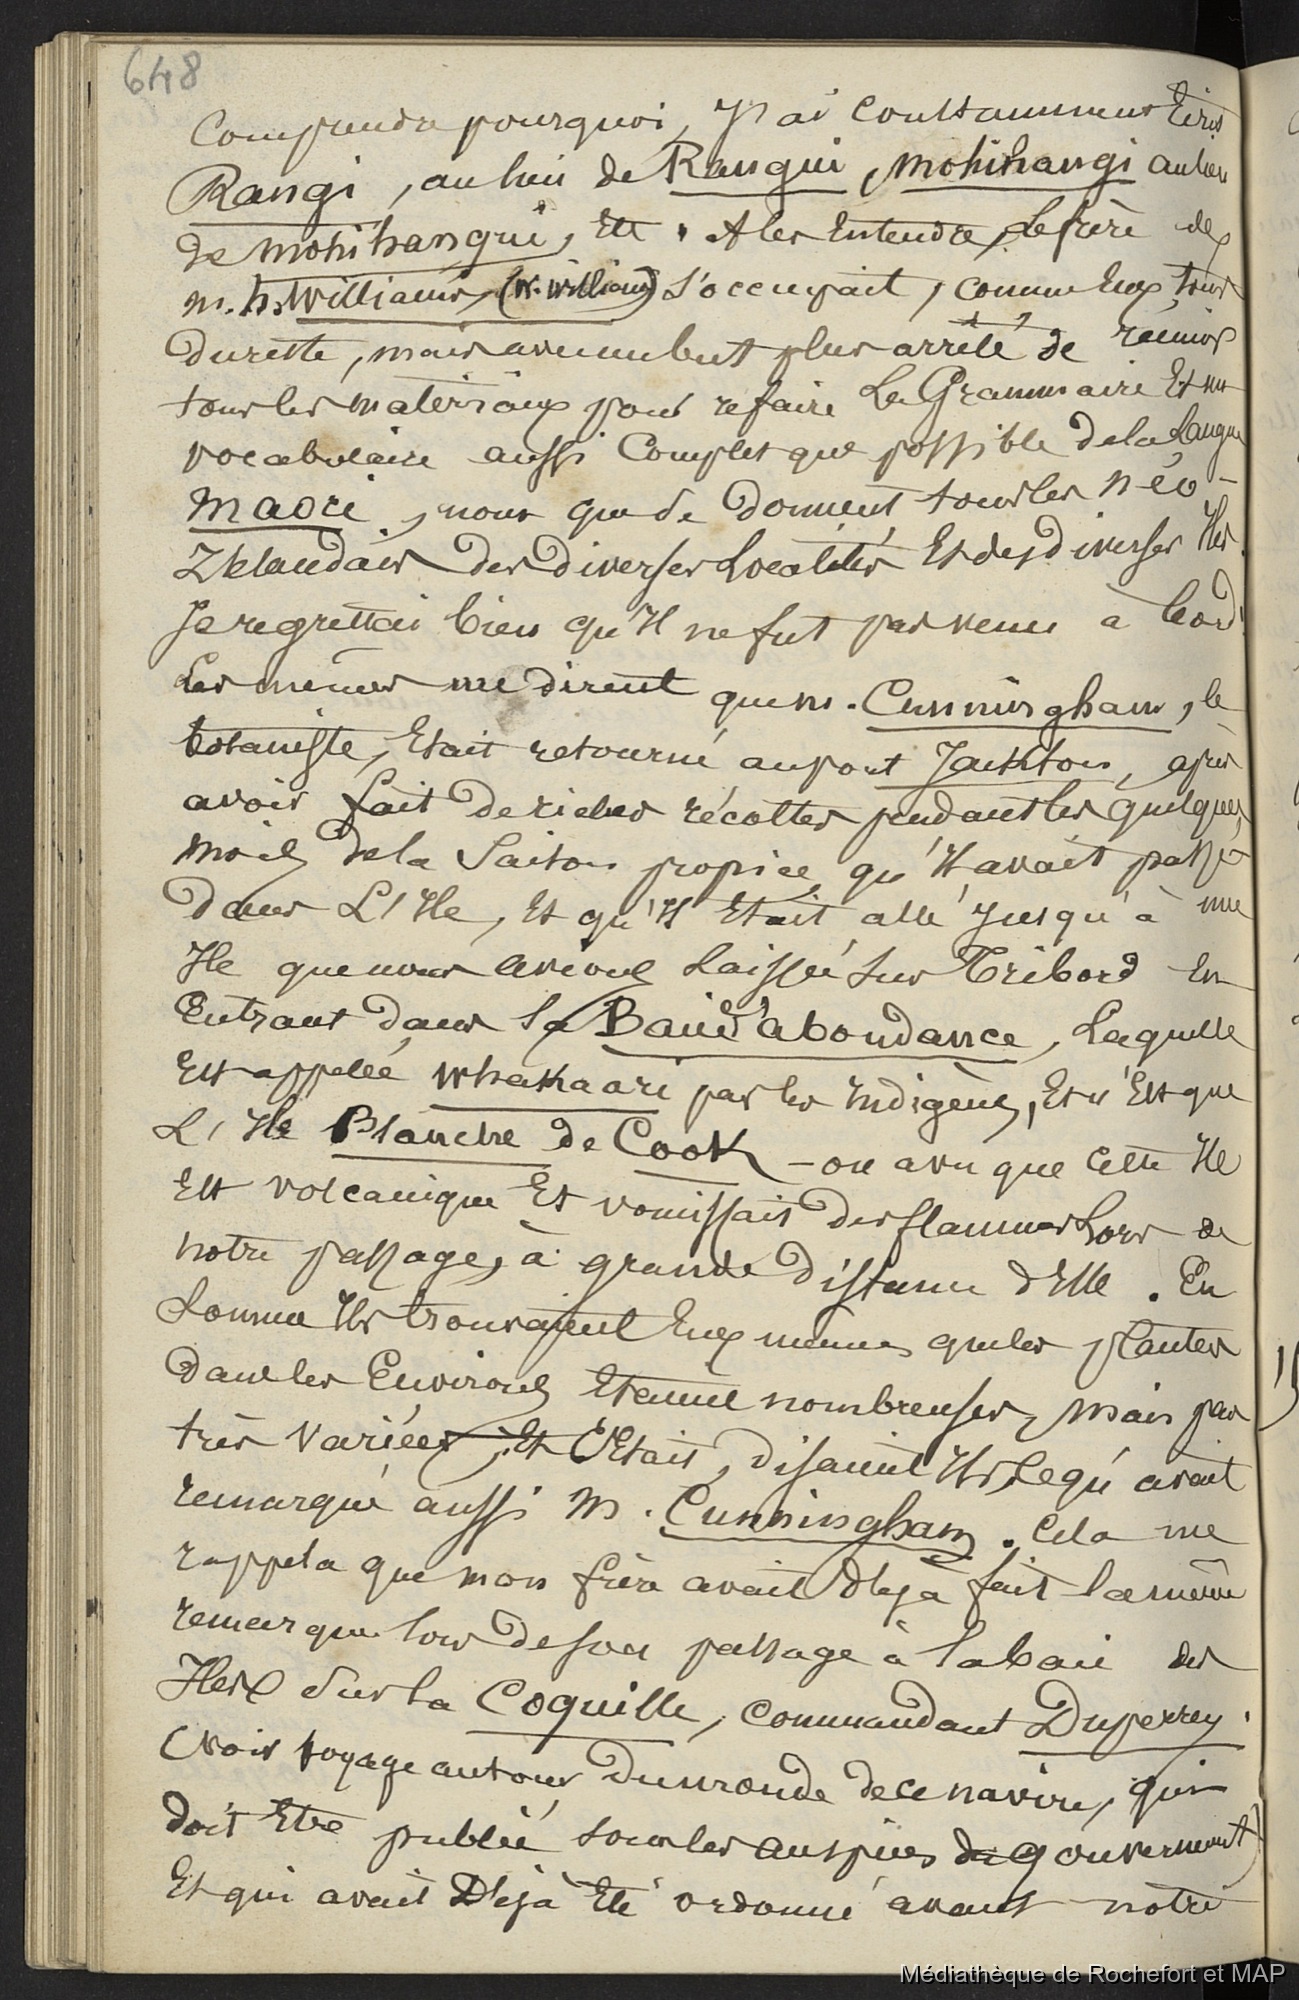 648
Comprendre pourquoi, J'ai Constamment Ecrit
Rangi, au lieu de Rangui, Mohihangi au lieu
de Mohihangui, Etc. A les Entendre, le frère de
m. h. Williams, (W. William) s'occupait, comme Eux tous
du reste, mais avec un but plus arrêté de réunir
tous les matériaux pour refaire La Grammaire Et un
vocabulaire aussi Complet que possible de la Langue
Maori, nous que se donnent tous les Néo-
Zélandais des diverses Localités Et des diverses Iles.
Je regrettai bien qu'Il ne fut pas venu à bord.
Les mêmes me dirent que m. Cunningham, le
botaniste, Etait retourné au port Jackson, après
avoir fait de riches récoltes pendant les quelques
mois de la Saison propice qu'Il avait passé
dans L'Ile, Et qu'Il Etait allé jusqu'à une
Ile que nous avions Laissée sur Tribord En
Entrant dans la Baie d'abondance, Laquelle
Est appelée Whakaari par les Indigènes, Et n'Est que
L'Ile Blanche de Cook - on a vu que Cette Ile
Est volcanique Et vomissait des flammes Lors de
notre passage, à grande distance d'Elle. En
Somme Ils trouvaient Eux mêmes que les plantes
dans les Environs Etaient nombreuses, mais pas
très variées, Et C'Etait, disaient Ils, ce qu'avait
remarqué aussi M. Cunningham. Cela me
rappela que mon frère avait Déjà fait la même
remarque lors de son passage à la baie des
Iles sur la Coquille, Commandant Duperrey.
(voir voyage autour du monde de ce navire, qui
doit Etre publié sous les auspices du gouvernement)
Et qui avait Déjà Eté ordonné avant notre
Médiathèque de Rochefort et MAP